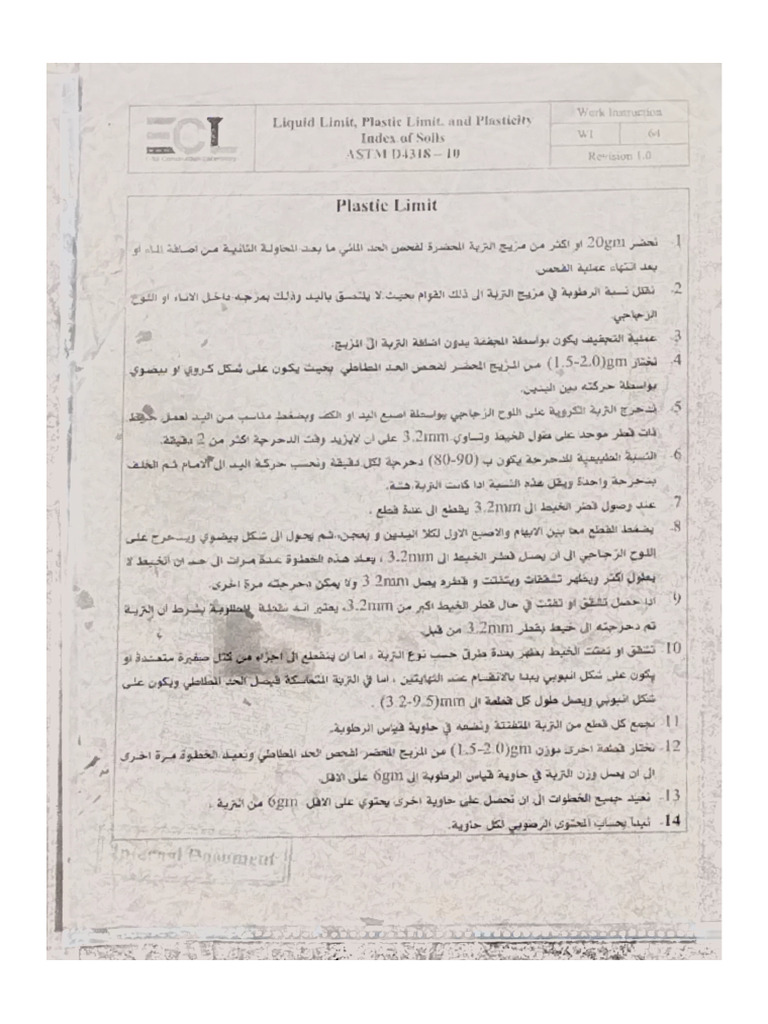 ECL
Liquid Limit, Plastic Limit, and Plasticity
Index of Soils
ASTM D4318 – 10
Work Instruction
WI 64
Revision 1.0
Plastic Limit
1. نحضر 20gm او اكثر من مزيج التربة المحضرة لفحص الحد المائي ما بعد المحاولة الثانية من اضافة الماء او
بعد انتهاء عملية الفحص.
2. نقلل نسبة الرطوبة في مزيج التربة الى ذلك القوام بحيث لا يلتصق باليد وذلك بمزجه داخل الاناء او اللوح
الزجاجي.
3. عملية التجفيف يكون بواسطة المجففة بدون اضافة التربة الى المزيج.
4. نختار 1.5-2.0)gm) من المزيج المحضر لفحص الحد المطاطي بحيث يكون على شكل كروي او بيضوي
بواسطة حركته بين اليدين.
5. ندحرج التربة الكروية على اللوح الزجاجي بواسطة اصبع اليد او الكف وبضغط مناسب من اليد لعمل خيط
ذات قطر موحد على طول الخيط وتساوي 3.2mm على ان لايزيد وقت الدحرجة اكثر من 2 دقيقة.
6. النسبة الطبيعية للدحرجة يكون ب (90-80) دحرجة لكل دقيقة ونحسب حركة اليد الى الامام ثم الخلف
بدحرجة واحدة ويقل هذه النسبة اذا كانت التربة هشة.
7. عند وصول قطر الخيط الى 3.2mm يقطع الى عدة قطع .
8. يضغط القطع معا بين الابهام والاصبع الاول لكلا اليدين و يعجن، ثم يحول الى شكل بيضوي ويدحرج على
اللوح الزجاجي الى ان يصل قطر الخيط الى 3.2mm ، يعاد هذه الخطوة عدة مرات الى حد ان الخيط لا
يطول اكثر ويظهر تشققات ويتفتت و قطره يصل 3.2mm ولا يمكن دحرجته مرة اخرى.
9. اذا حصل تشقق او تفتت في حال قطر الخيط اكبر من 3.2mm، يعتبر انه نقطة المطلوبة بشرط ان التربة
تم دحرجته الى خيط بقطر 3.2mm من قبل.
10. تشقق او تفتت الخيط يظهر بعدة طرق حسب نوع التربة ، اما ان ينقطع الى اجزاء من كتل صغيرة متعددة او
يكون على شكل انبوبي يبدا بالانقسام عند النهايتين ، اما في التربة المتماسكة فيصل الحد المطاطي ويكون على
شكل انبوبي ويصل طول كل قطعة الى 3.2-9.5)mm) .
11. نجمع كل قطع من التربة المتفتتة ونضعه في حاوية قياس الرطوبة.
12. نختار قطعة اخرى موزن 1.5-2.0)gm) من المزيج المحضر لفحص الحد المطاطي ونعيد الخطوة مرة اخرى
الى ان يصل وزن التربة في حاوية قياس الرطوبة الى 6gm على الاقل.
13. نعيد جميع الخطوات الى ان نحصل على حاوية اخرى يحتوي على الاقل 6gm من التربة .
14. نبدأ بحساب المحتوى الرطوبي لكل حاوية.
Internal Document